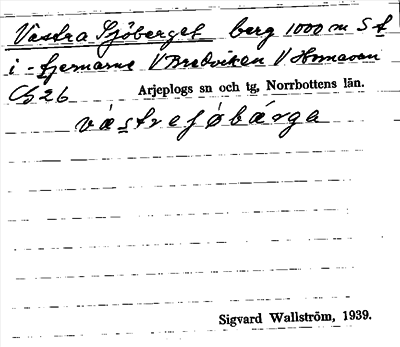 Västra Sjöberget berg 1000 m S t
i - tjernarne V Bredviken V Hornavan
Cb26
Arjeplogs sn och tg, Norrbottens län.
Sigvard Wallström, 1939.